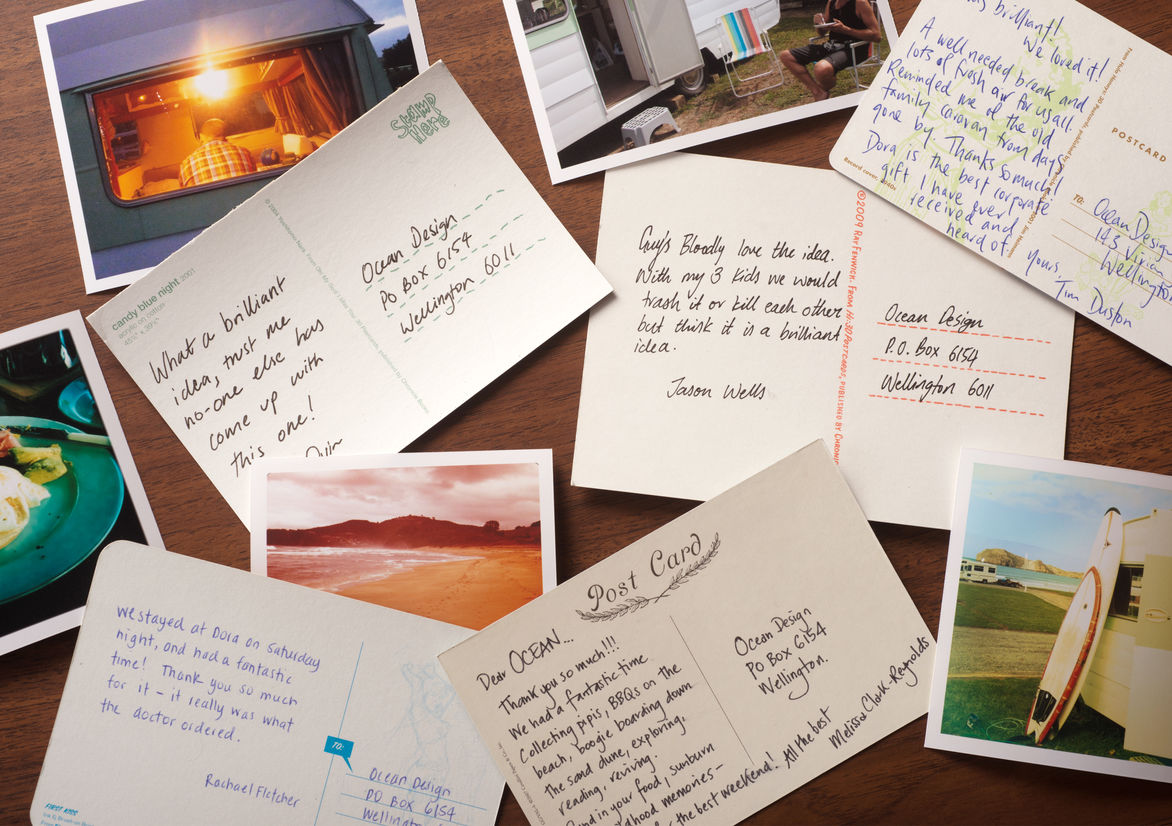 Stamp
Here
candy blue night 2001
acrylic on cotton
What a brilliant
idea, trust me
no-one else has
come up with
this one!
Ocean Design
PO Box 6154
Wellington 6011
Guys Bloodly love the idea.
With my 3 kids we would
trash it or kill each other
but think it is a brilliant
idea.
Jason Wells
©2009 RAY FENWICK. FROM HI-30 POSTCARDS, PUBLISHED BY
Ocean Design
P.O. Box 6154
Wellington 6011
brilliant!
We loved it!
A well needed break and
lots of fresh air for us all.
Reminded me of the old
family caravan from days
gone by. Thanks so much!
Dora is the best corporate
gift I have ever
received and
heard of.
Yours,
Tim Duston
POSTCARD
TO:
Ocean Design
143
Wellington
We stayed at Dora on Saturday
night, and had a fantastic
time! Thank you so much
for it - it really was what
the doctor ordered.
Rachael Fletcher
FIRST KISS
TO:
Ocean Design
PO BOX 6154
Wellington
Post Card
Dear OCEAN...
Thank you so much!!!
We had a fantastic time
Collecting pipis, BBQs on the
beach, boogie boarding down
The sand dune, exploring,
reading, reviving.
in your food, sunburn
memories-
the best weekend! All the best
Melissa Clark-Reynolds
Ocean Design
PO Box 6154
Wellington.